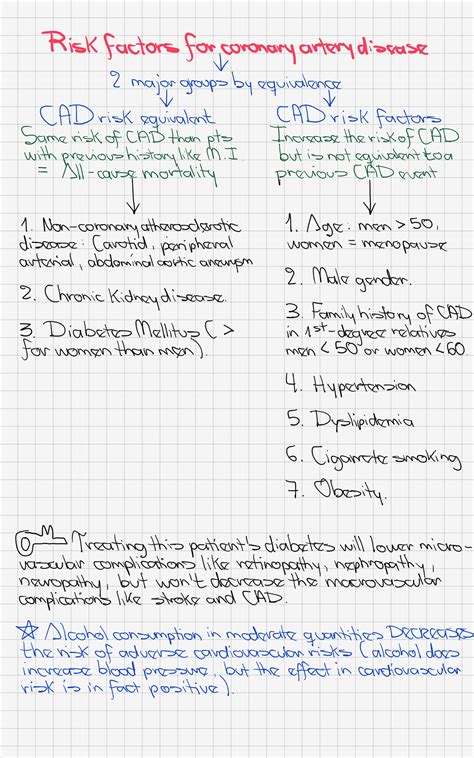 Risk factors for coronary artery disease
2 major groups by equivalence
CAD risk equivalent
Same risk of CAD than pts
with previous history like M.I
= All-cause mortality
1. Non-coronary atherosclerotic
disease: Carotid, peripheral
arterial, abdominal aortic aneurysm
2. Chronic Kidney disease.
3. Diabetes Mellitus ( >
for women than men).
CAD risk factors
Increase the risk of CAD
but is not equivalent to a
previous CAD event
1. Age: men > 50,
women = menopause
2. Male gender.
3. Family history of CAD
in 1st-degree relatives
men < 50 or women < 60.
4. Hypertension
5. Dyslipidemia
6. Cigarrete smoking
7. Obesity.
Treating this patient's diabetes will lower micro-
vascular complications like retinopathy, nephropathy,
neuropathy, but won't decrease the macrovascular
complications like stroke and CAD.
☆ Alcohol consumption in moderate quantities DECREASES
the risk of adverse cardiovascular risks (alcohol does
increase blood pressure, but the effect in cardiovascular
risk is in fact positive).